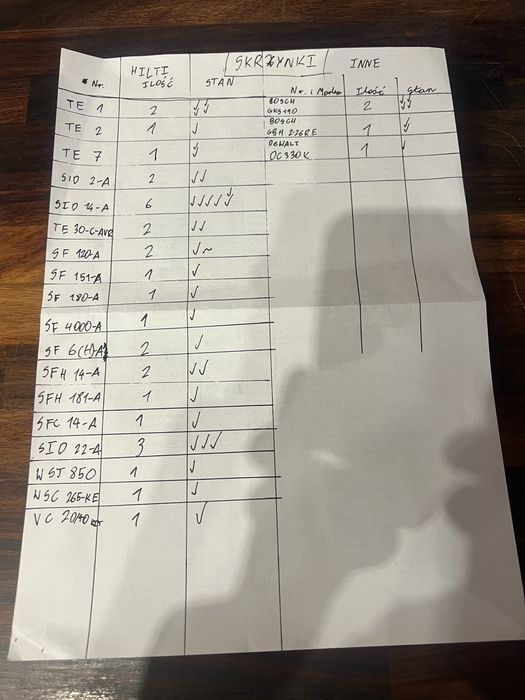 SKRZYNKI
HILTI INNE
Nr. ILOŚĆ STAN Nr. i Marka Ilość Stan
TE 1 2 ✓✓ BOSCH GKS 190 2 ✓✓
TE 2 1 ✓ BOSCH GBH 2-26RE 1 ✓
TE 7 1 ✓ DEWALT DC330K 1 ✓
SID 2-A 2 ✓✓
SID 14-A 6 ✓✓✓✓✓
TE 30-C-AVR 2 ✓✓
SF 120-A 2 ✓~
SF 151-A 1 ✓
SF 180-A 1 ✓
SF 4000-A 1 ✓
SF 6(H)-A 2 ✓
SFH 14-A 2 ✓✓
SFH 181-A 1 ✓
SFC 14-A 1 ✓
SID 22-A 3 ✓✓✓
WST 850 1 ✓
WSC 265-KE 1 ✓
VC 20/40 1 ✓